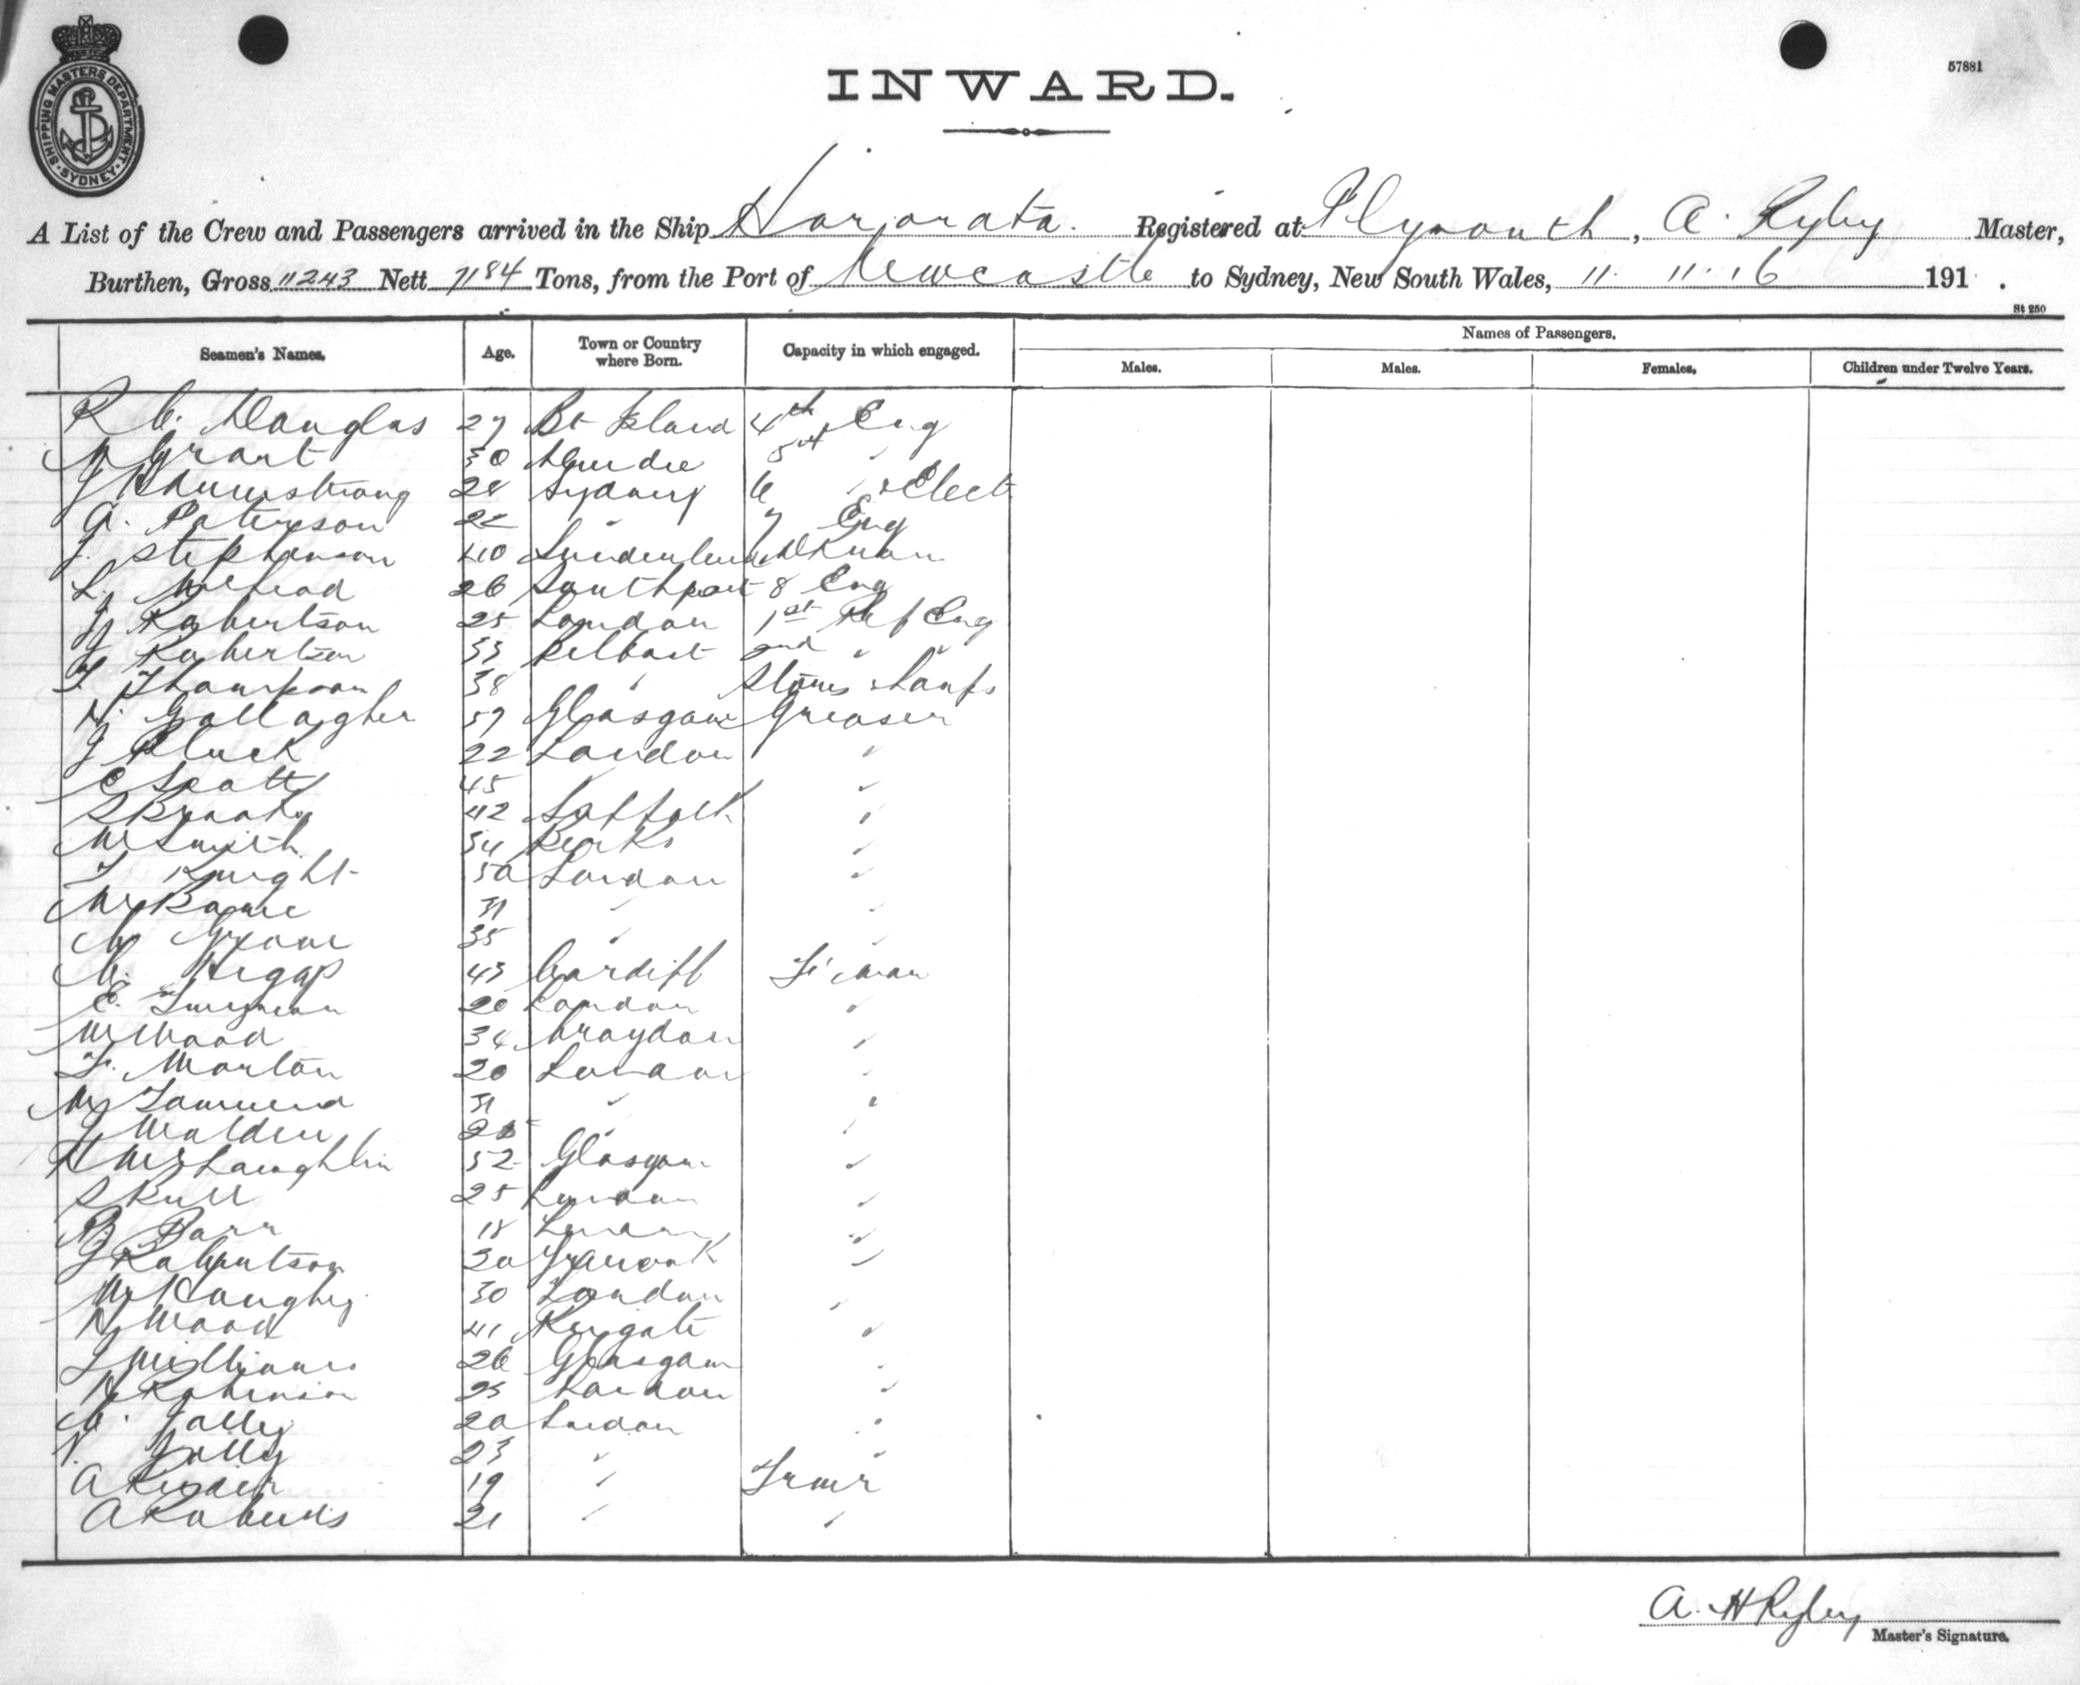 SHIPPING MASTERS DEPARTMENT
SYDNEY
57881
INWARD.
A List of the Crew and Passengers arrived in the Ship Hororata. Registered at Plymouth, A. Ryby Master,
Burthen, Gross 11243 Nett 7184 Tons, from the Port of Newcastle to Sydney, New South Wales, 11. 11. 16 191 .
St 250
Seamen's Names. Age. Town or Country where Born. Capacity in which engaged. Names of Passengers.
Males. Males. Females. Children under Twelve Years.
R C. Douglas 27 4th Eng
Grant 30 Dundee 5th "
J H Armstrong 28 Sydney 6 " Elect
A. Paterson " 7 Eng
J. Stephenson 40 Sunderland Dkman
L. 26 Southport 8 Eng
J Robertson 25 London 1st Ref Eng
J Robertson 33 Belfast 2nd " "
T Thompson 38 " Stores
H. Gallagher 39 Glasgow Greaser
J Pluck 22 London "
C Scott 45 "
S Brooks 42 Suffolk "
W Smith 34 Berks "
T Knight 50 London "
W 31 " "
35 " "
43 Cardiff Fireman
E. 20 London "
W Wood 34 Croydon "
F. Morton 20 London "
W Townsend 31 " "
J Walden " "
H McLaughlin 52 Glasgow "
S Bull 25 London "
Parr 18 London "
J Robertson 30 Greenock "
W Haughey 30 London "
H Wood 41 Reigate "
J Williams 26 Glasgow "
H Robinson 25 London "
W. Jolly 20 London "
Jolly 23 " "
A 19 " Trmr
A Roberts 21 " "
A. H Ryby
Master's Signature.